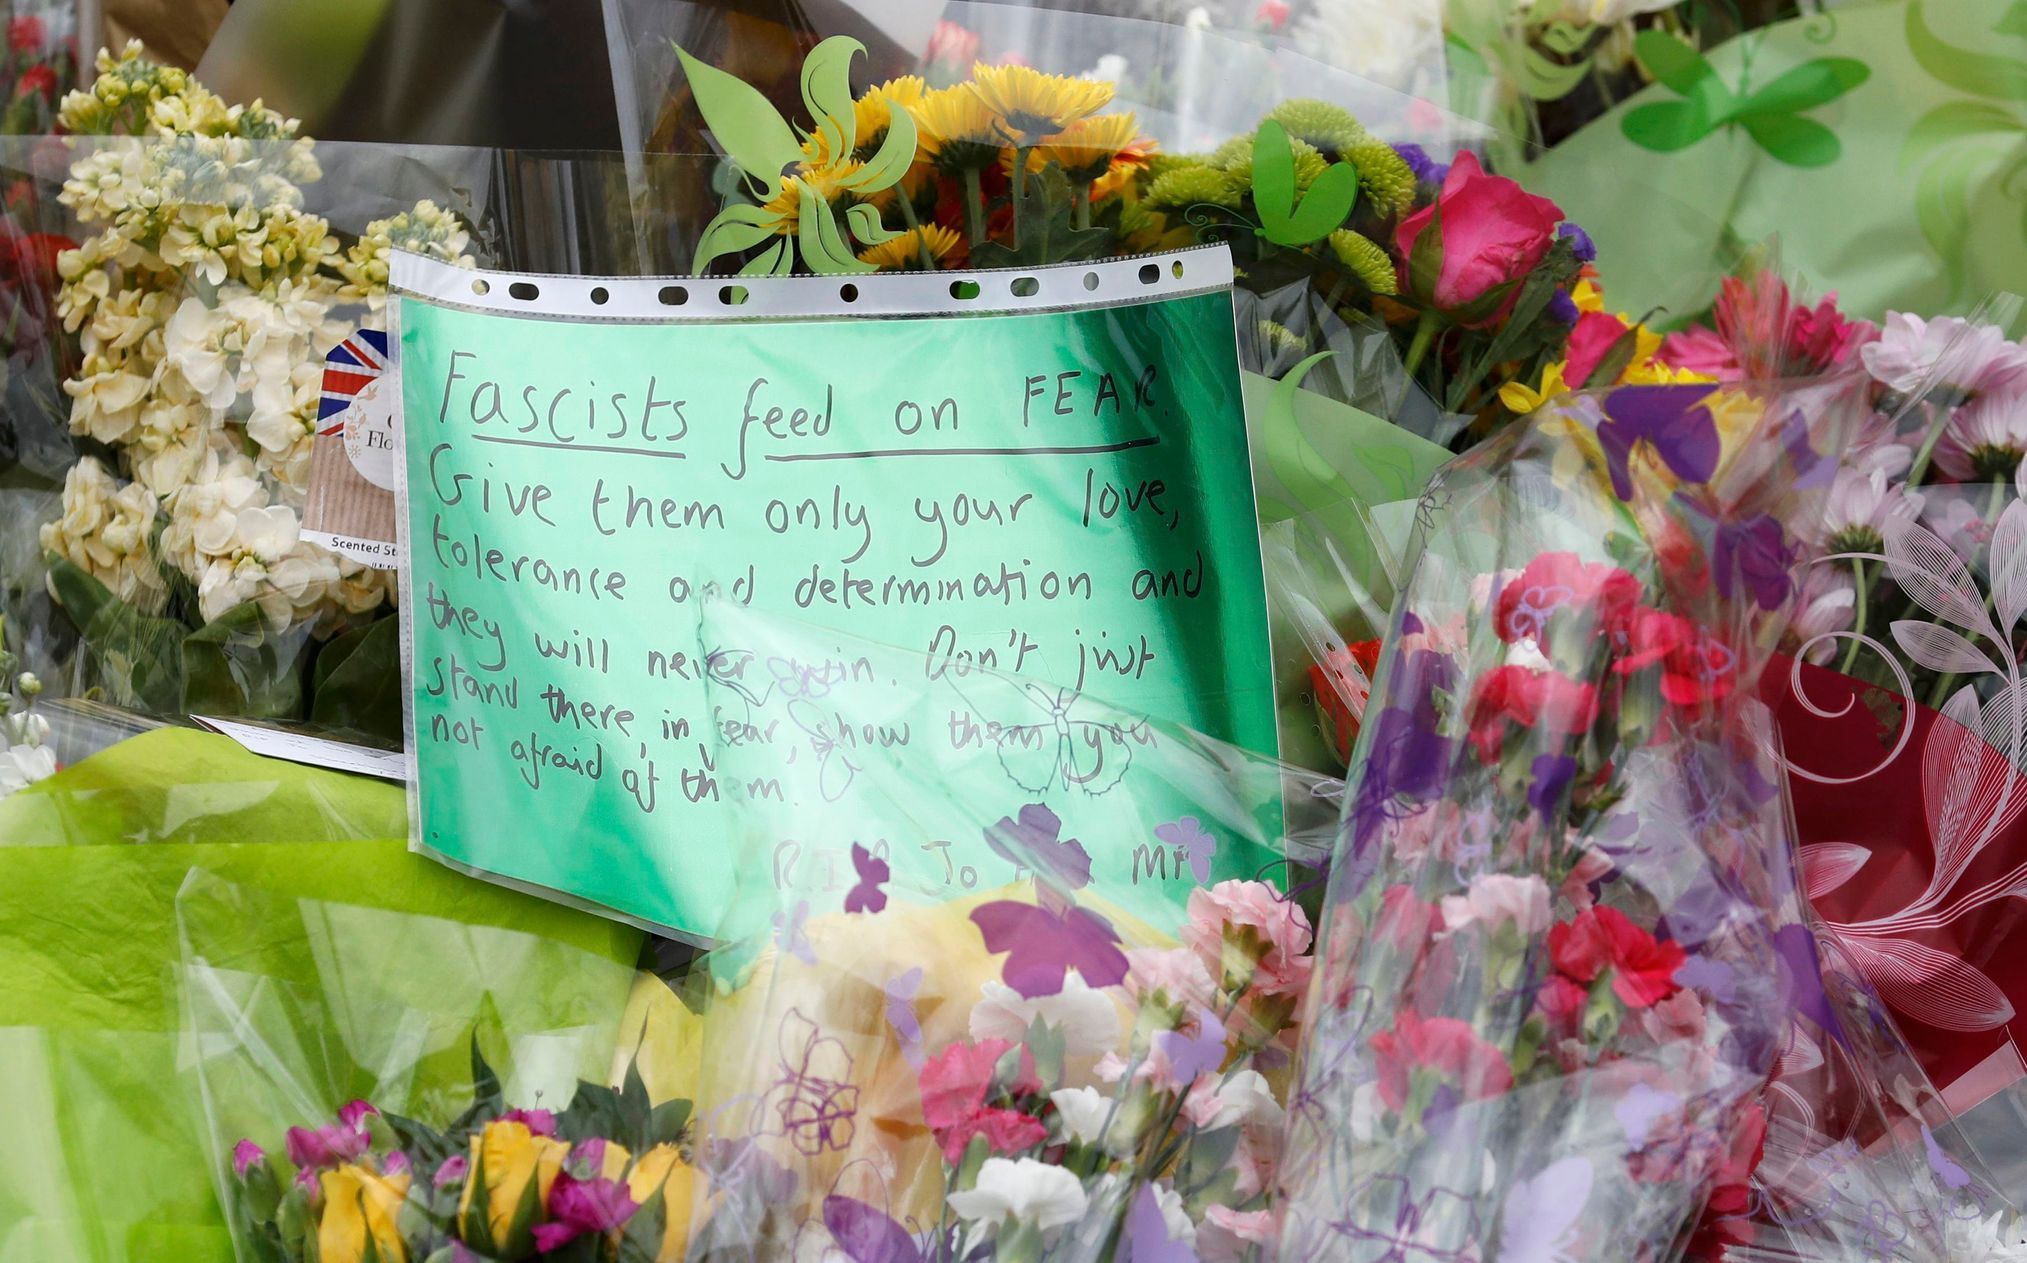 Fascists feed on FEAR.
Give them only your love,
tolerance and determination and
they will never in. Don't just
stand there, in fear, show them you
not afraid of them.
R.I.P Jo MP
Flo
Scented St